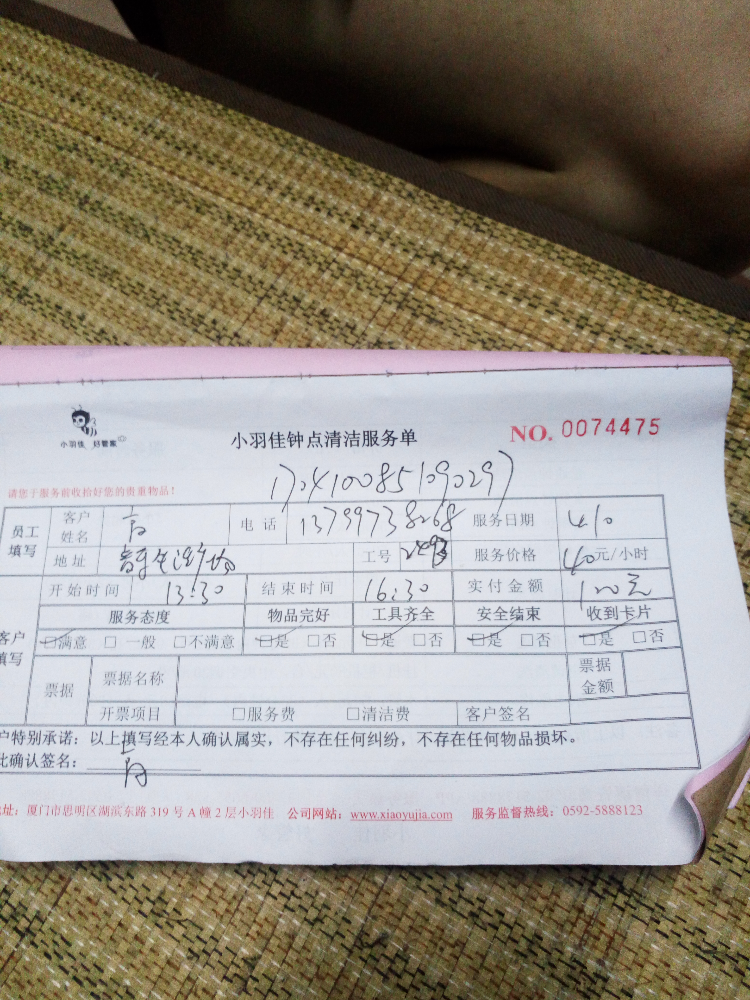 小羽佳 好管家
小羽佳钟点清洁服务单
NO. 0074475
请您于服务前收拾好您的贵重物品！
员工填写 客户姓名 电话 13799738268 服务日期 4.10
地址 工号 服务价格 40元/小时
开始时间 13:30 结束时间 16:30 实付金额
客户填写 服务态度 物品完好 工具齐全 安全结束 收到卡片
□满意 □一般 □不满意 □是 □否 □是 □否 □是 □否 □是 □否
票据 票据名称 票据金额
开票项目 □服务费 □清洁费 客户签名
户特别承诺：以上填写经本人确认属实，不存在任何纠纷，不存在任何物品损坏。
此确认签名：
地址：厦门市思明区湖滨东路 319 号 A 幢 2 层小羽佳 公司网站：www.xiaoyujia.com 服务监督热线：0592-5888123